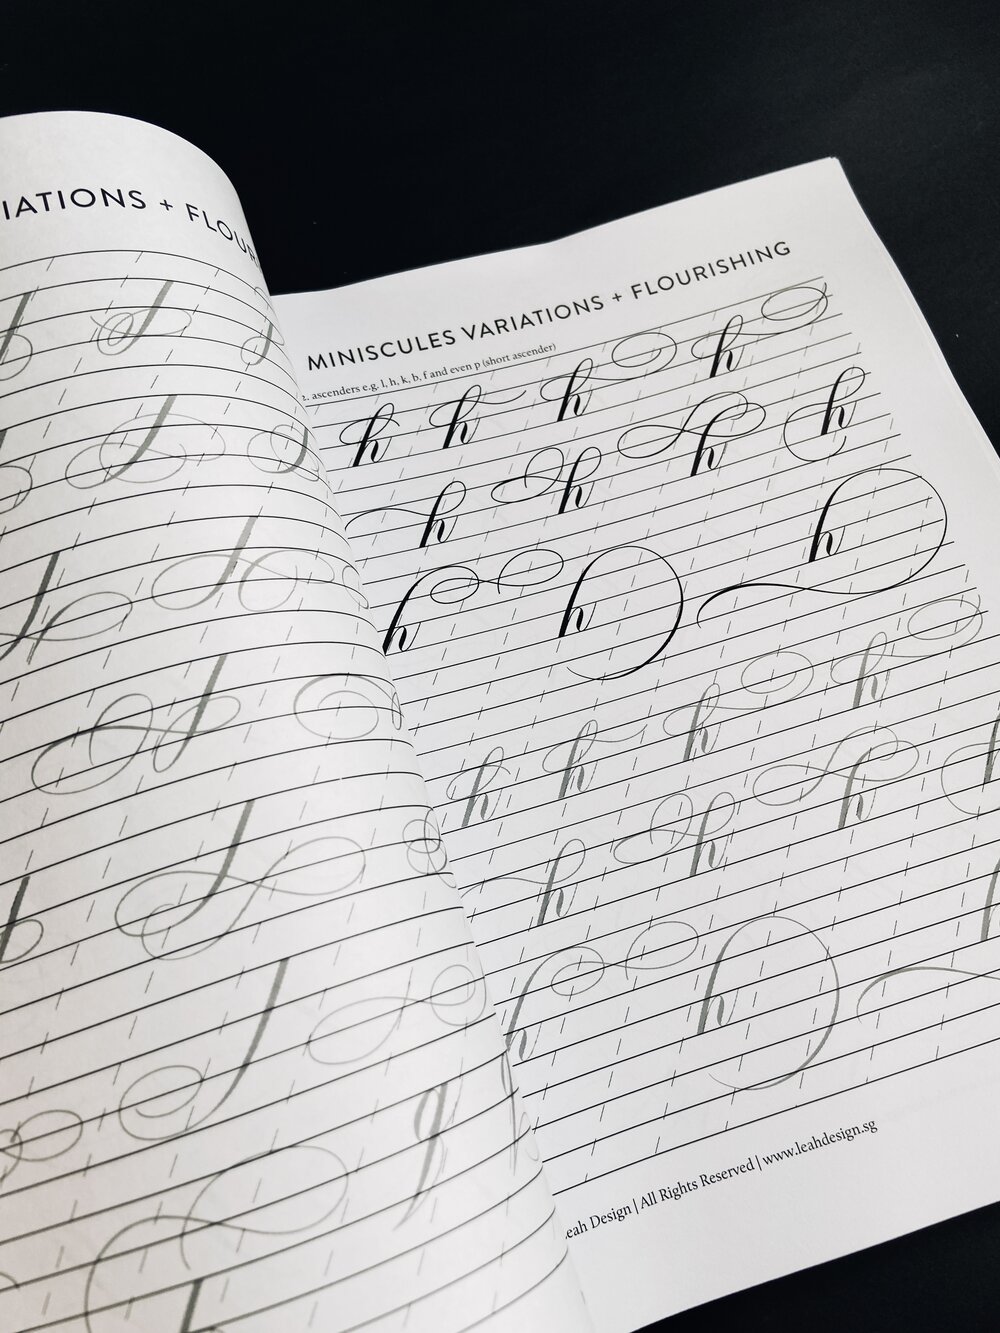 IATIONS + FLOUR
MINISCULES VARIATIONS + FLOURISHING
2. ascenders e.g. l, h, k, b, f and even p (short ascender)
h h h h
h h h h
h h h
h h h h
h h h
h h
Leah Design | All Rights Reserved | www.leahdesign.sg